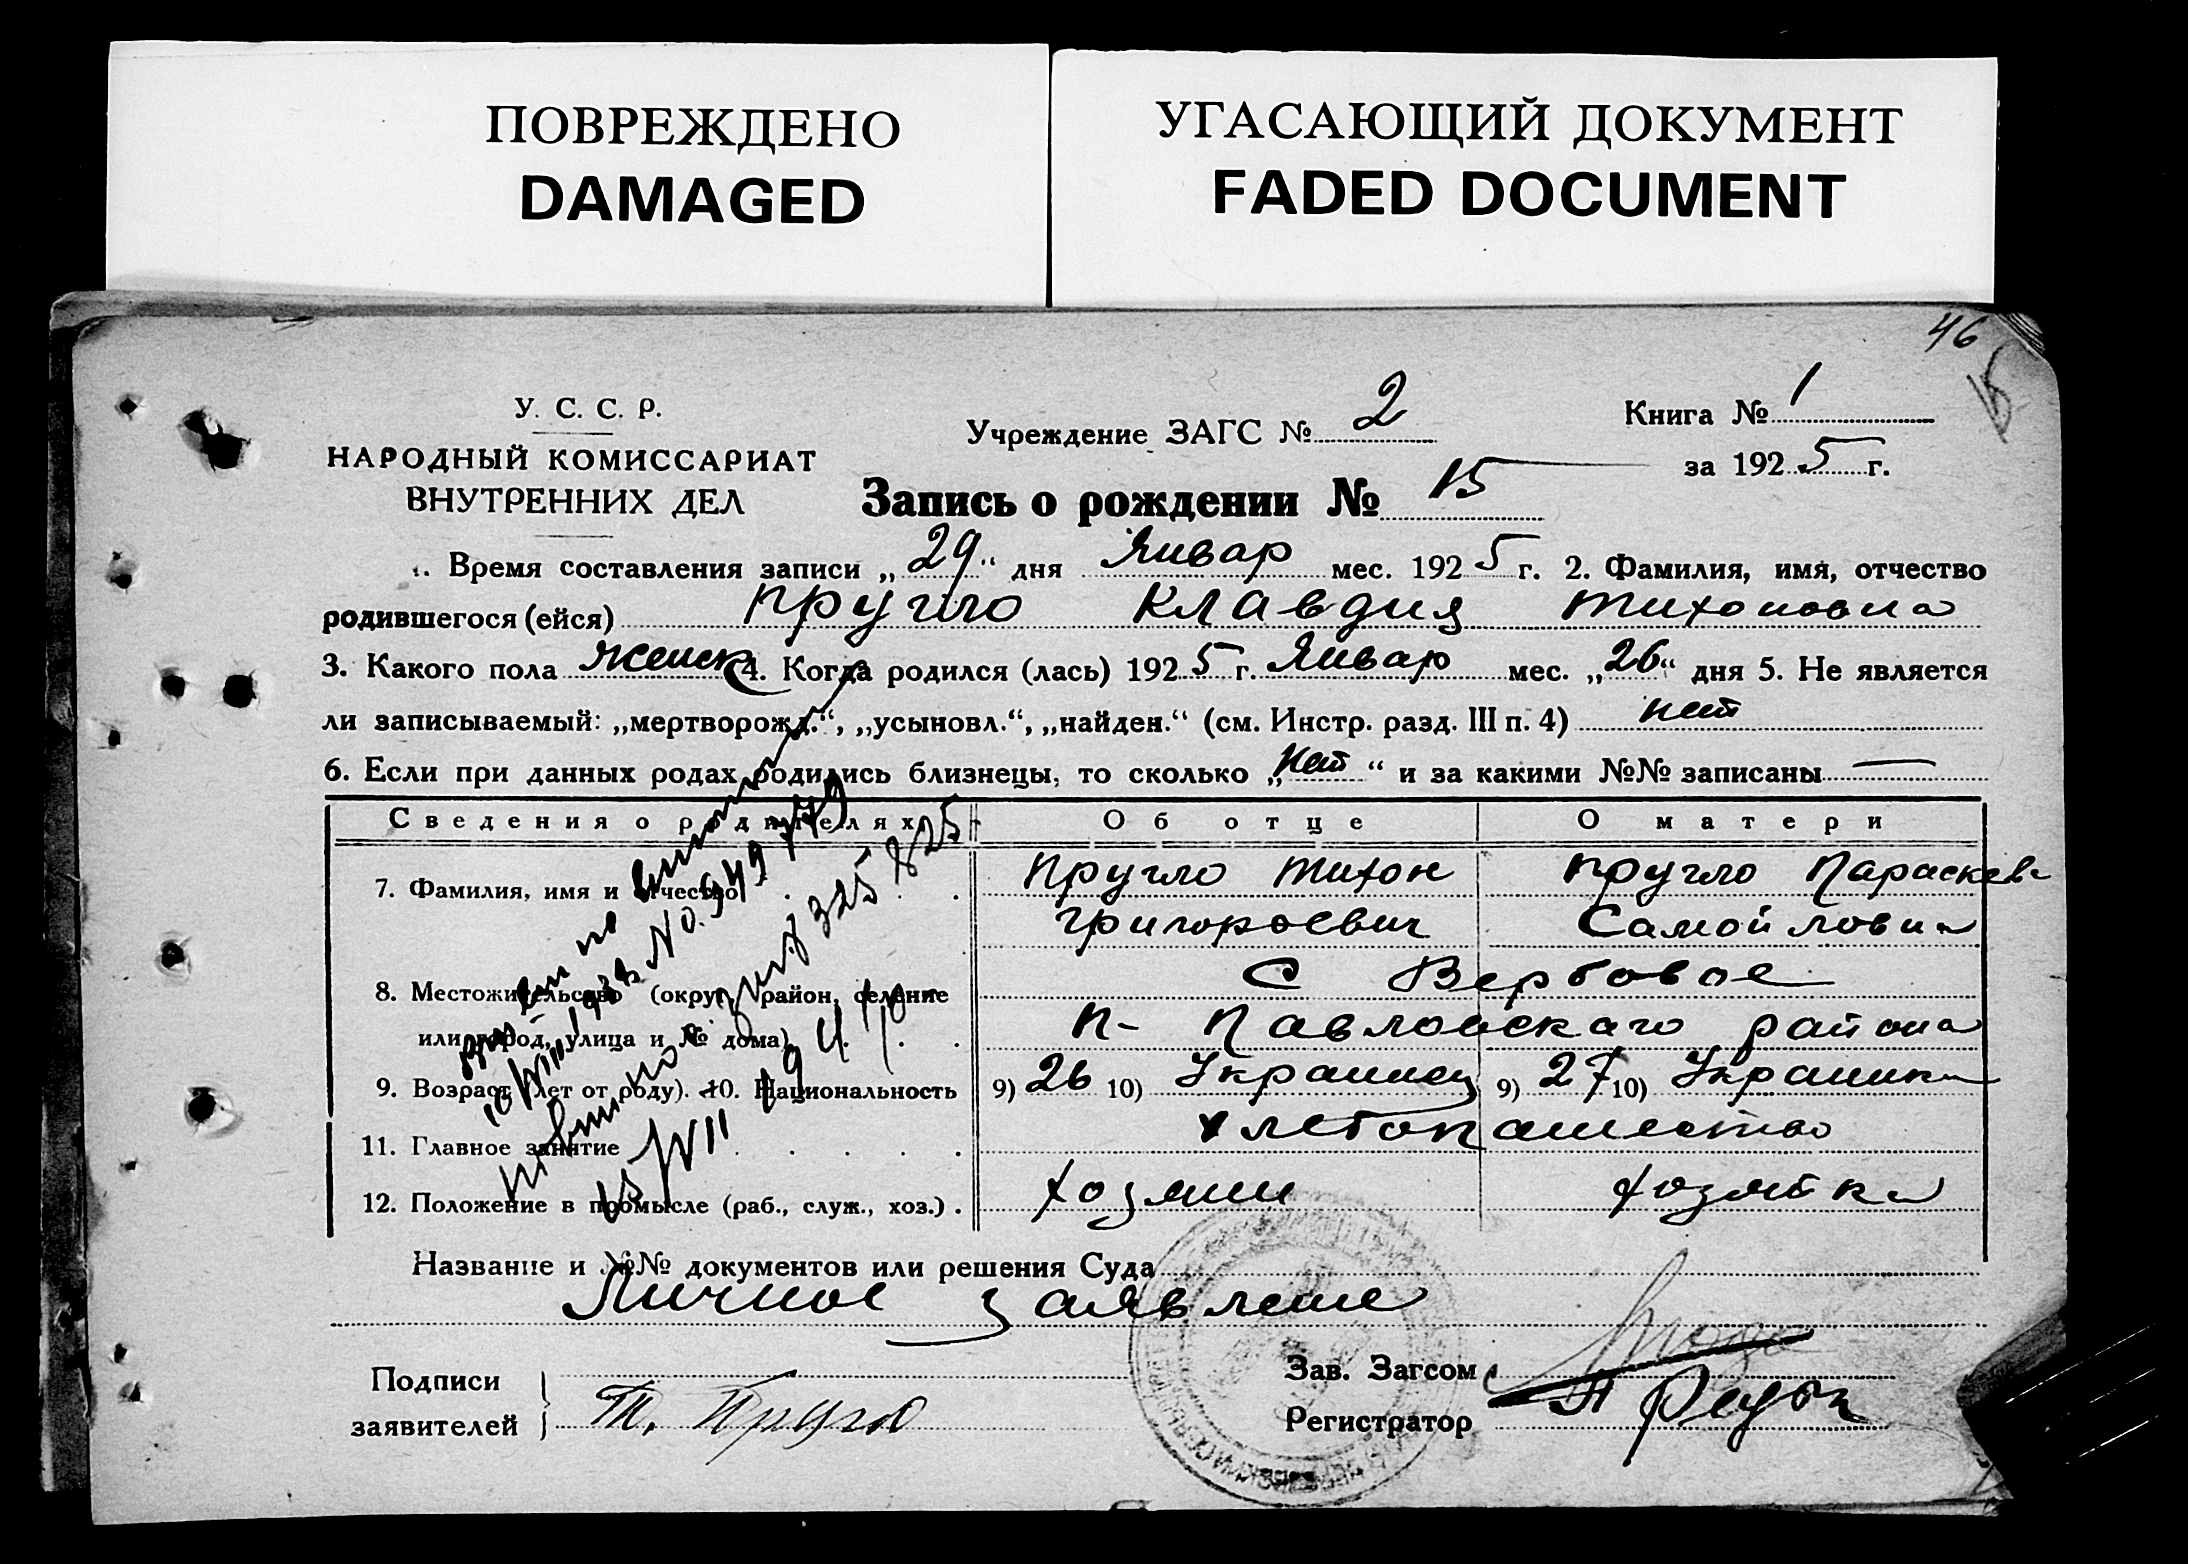 ПОВРЕЖДЕНО
DAMAGED
УГАСАЮЩИЙ ДОКУМЕНТ
FADED DOCUMENT
46
У. С. С. Р.
НАРОДНЫЙ КОМИССАРИАТ
ВНУТРЕННИХ ДЕЛ
Учреждение ЗАГС № 2
Книга № 1
за 1925 г.
Запись о рождении № 15
1. Время составления записи „29“ дня Январ мес. 1925 г. 2. Фамилия, имя, отчество
родившегося (ейся) Пругло Клавдия Тихоновна
3. Какого пола женск 4. Когда родился (лась) 1925 г. Январ мес. „26“ дня 5. Не является
ли записываемый: „мертворожд.“, „усыновл.“, „найден.“ (см. Инстр. разд. III п. 4) нет
6. Если при данных родах родились близнецы, то сколько „нет“ и за какими №№ записаны —
Сведения о родителях Об отце О матери
7. Фамилия, имя и отчество Пругло Тихон Пругло Параскев
Григорьевич Самойловна
8. Местожительство (округ, район, селение С Вербовое
или город, улица и № дома) П- Павловскаго района
9. Возраст (лет от роду). 10. Национальность 9) 26 10) Украинец 9) 27 10) Украинка
11. Главное занятие хлебопашество
12. Положение в промысле (раб., служ., хоз.) хозяин хозяйка
No. 949779
325825
Название и №№ документов или решения Суда
Личное заявление
Подписи
заявителей Т. Пругло
Зав. Загсом
Регистратор